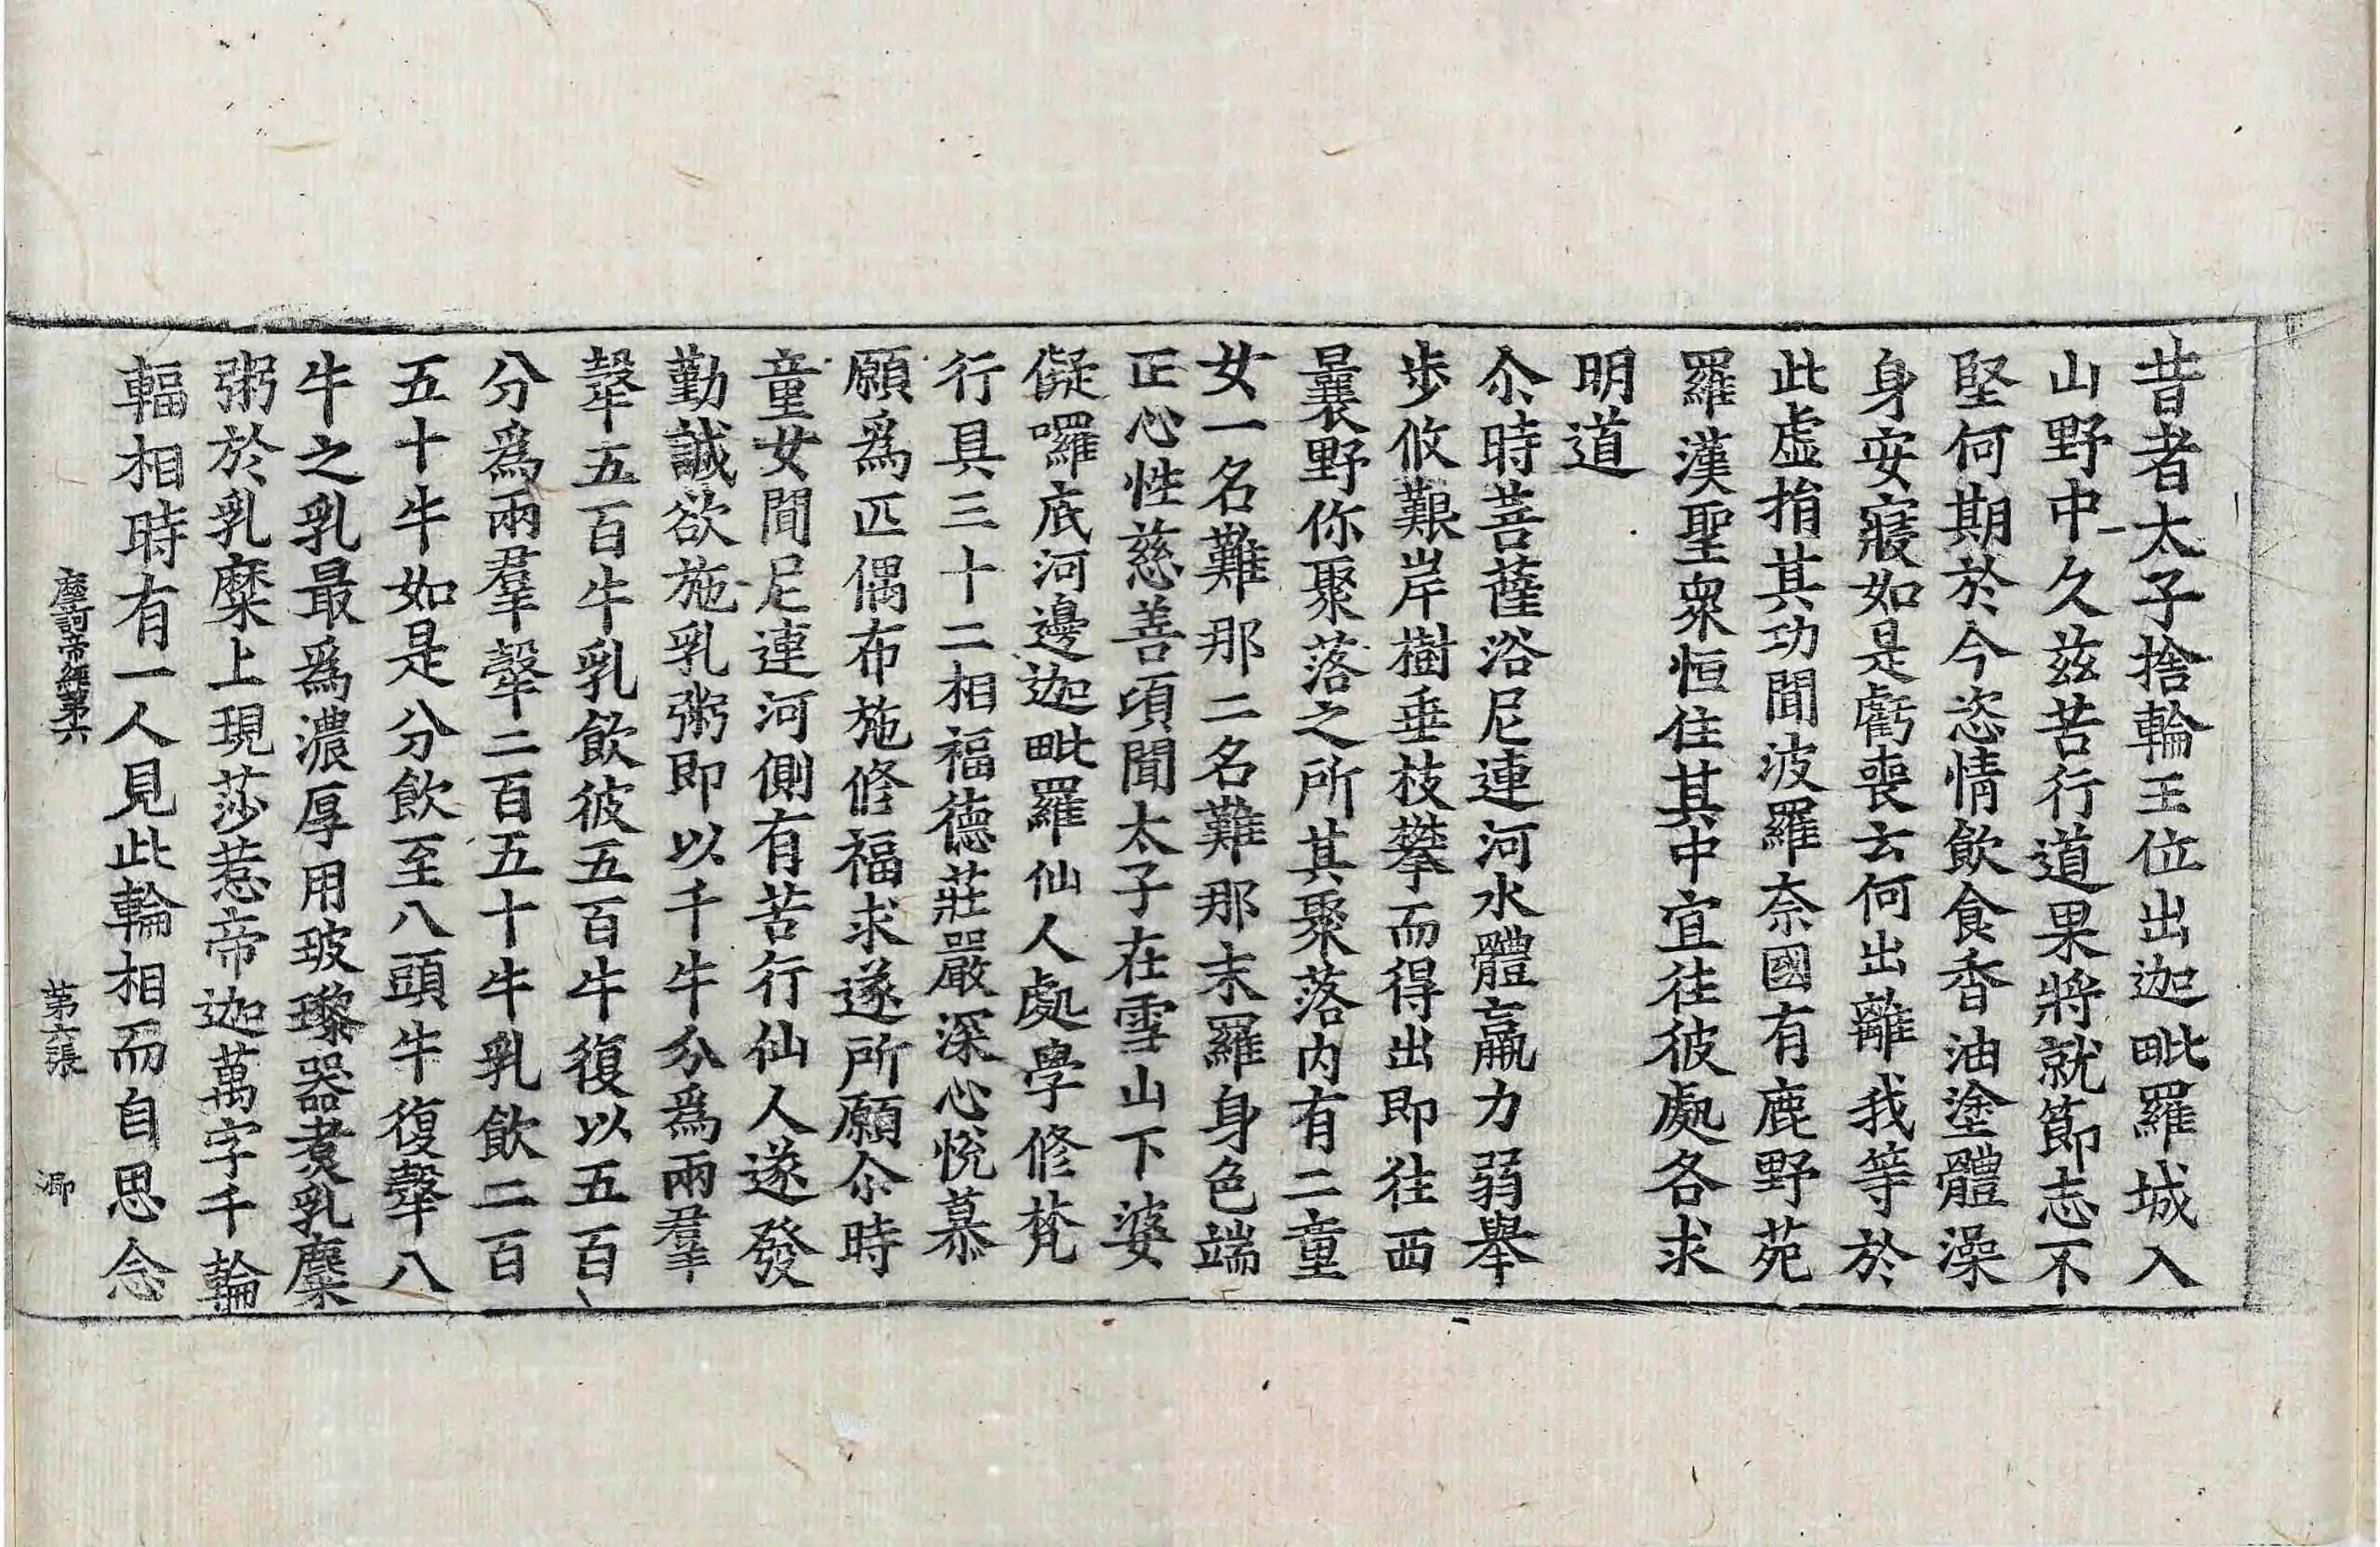 昔者太子捨輪王位出迦毗羅城入
山野中久茲苦行道果將就節志不
堅何期於今恣情飲食香油塗體澡
身安寢如是虧喪云何出離我等於
此虚捐其功聞波羅奈國有鹿野苑
羅漢聖衆恒住其中宜往彼處各求
明道
尒時菩薩浴尼連河水體羸力弱舉
步攸艱岸樹垂枝攀而得出即往西
曩野你聚落之所其聚落内有二童
女一名難那二名難那末羅身色端
正心性慈善頃聞太子在雪山下婆
儗囉底河邊迦毗羅仙人處學修梵
行具三十二相福德莊嚴深心悅慕
願爲匹偶布施修福求遂所願尒時
童女聞尼連河側有苦行仙人遂發
勤誠欲施乳粥即以千牛分爲兩羣
㲉五百牛乳飲彼五百牛復以五百
分爲兩羣㲉二百五十牛乳飲二百
五十牛如是分飲至八頭牛復㲉八
牛之乳最爲濃厚用玻瓈器煑乳糜
粥於乳糜上現莎惹帝迦萬字千輪
輻相時有一人見此輪相而自思念
摩訶帝經第六　第六張　㴬